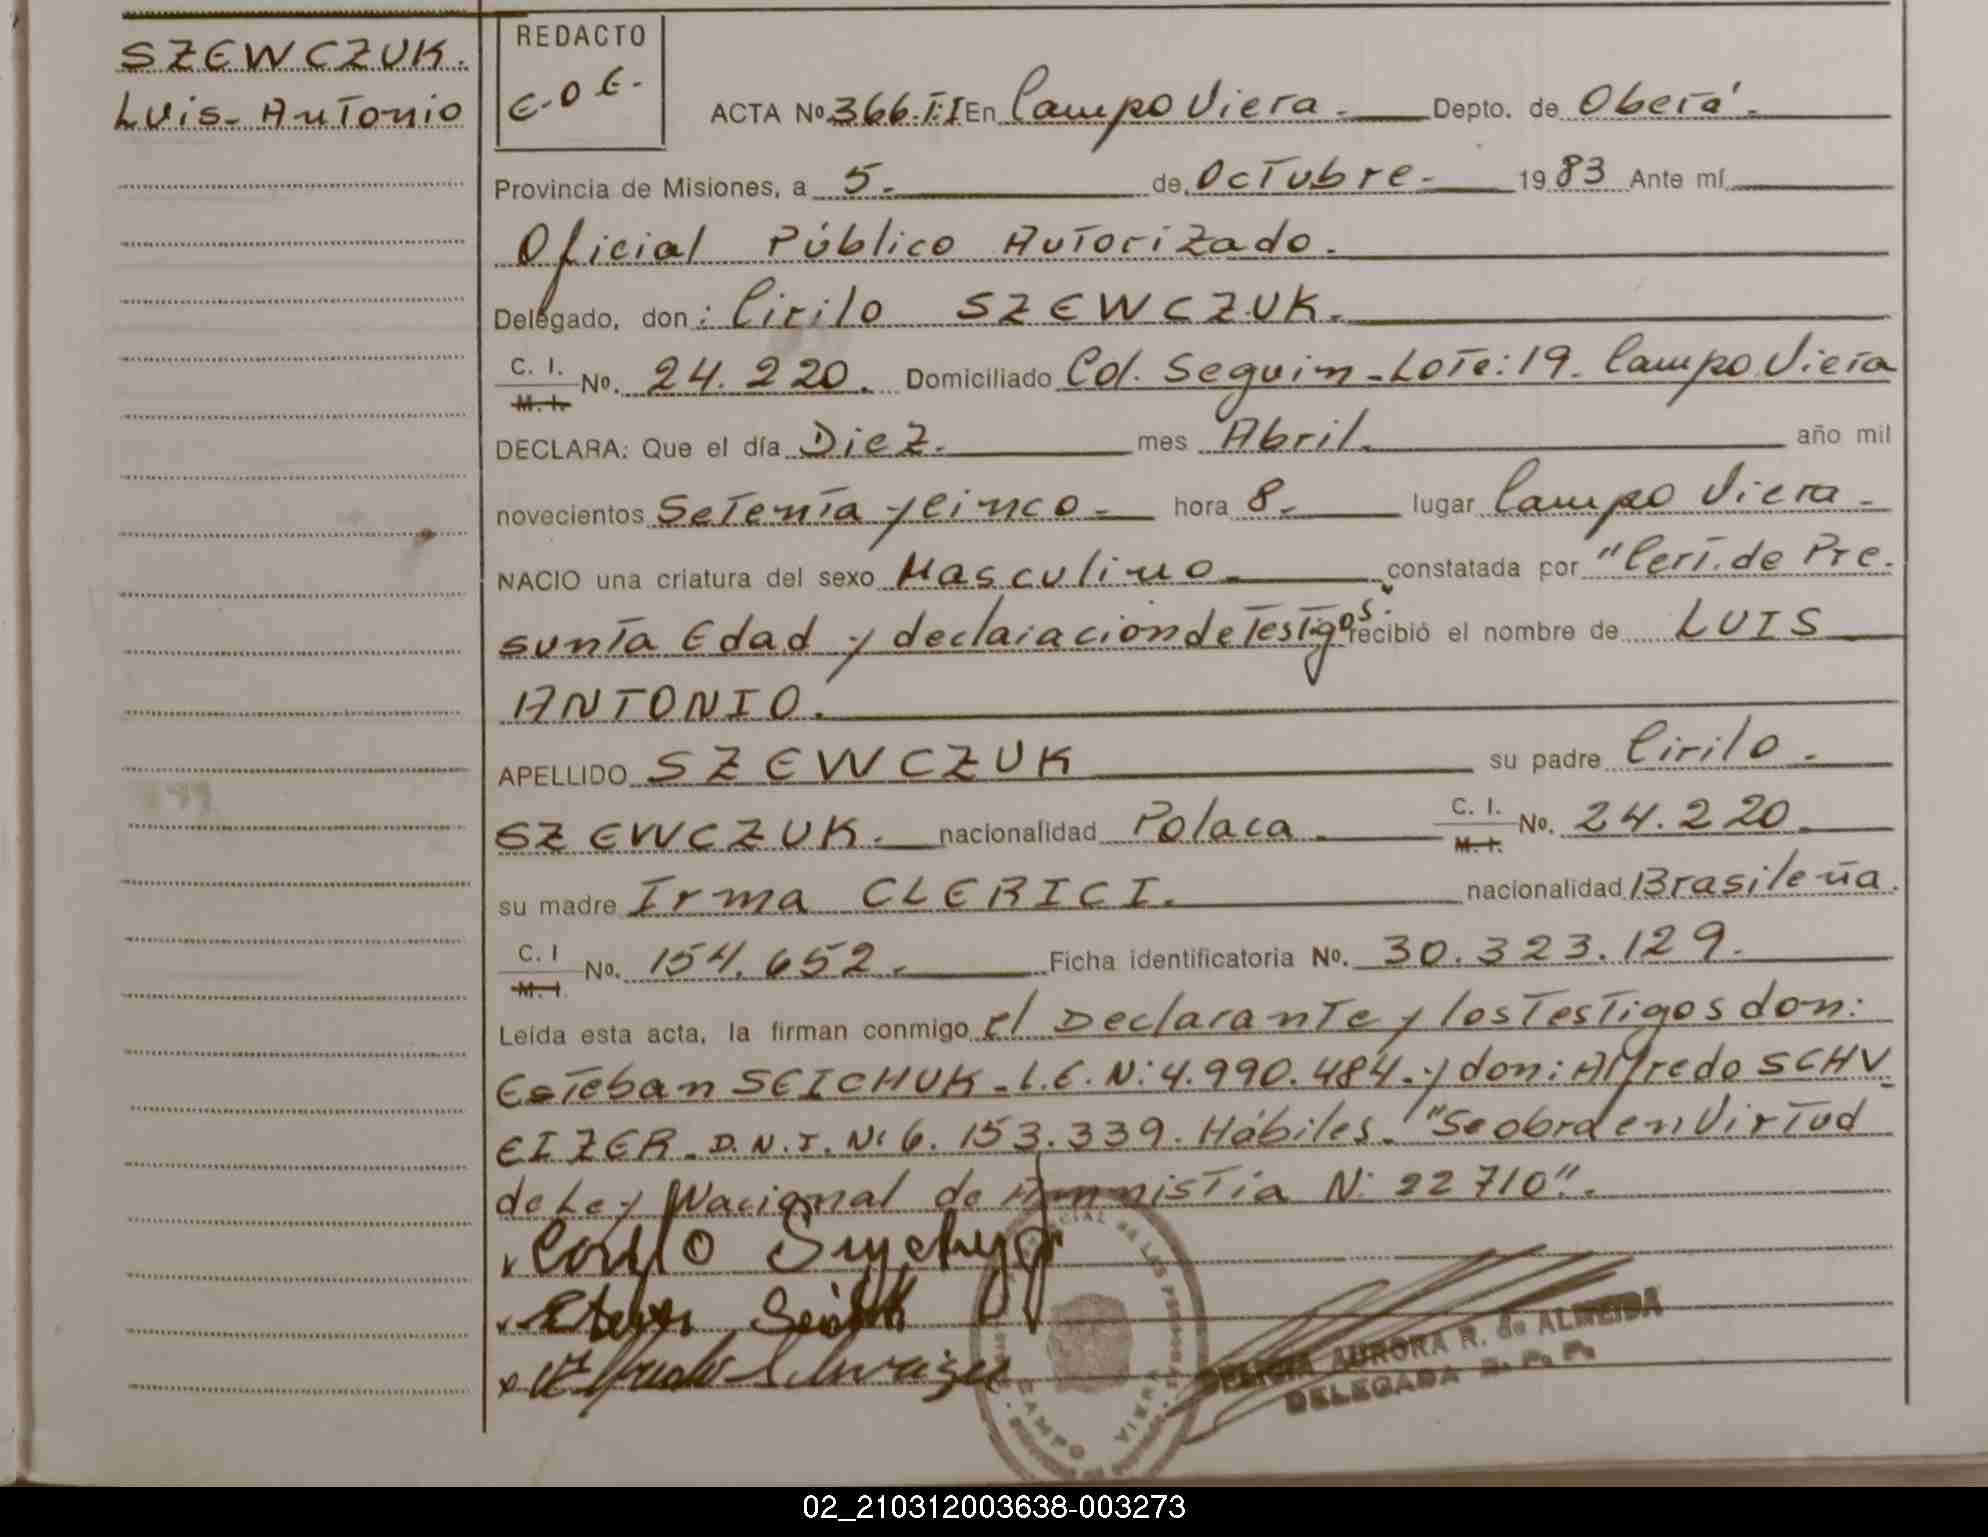 SZEWCZUK.
Luis- Antonio
REDACTO
E.O.E.
ACTA Nº 366.T:I En Campo Viera. Depto. de Oberá.
Provincia de Misiones, a 5. de Octubre. 1983 Ante mí
Oficial Público Autorizado.
Delegado, don: Cirilo SZEWCZUK.
C. I.
M. I. Nº. 24.220. Domiciliado Col. Seguim-Lote: 19. Campo Viera
DECLARA: Que el día Diez. mes Abril. año mil
novecientos Setenta y Cinco. hora 8. lugar Campo Viera.
NACIO una criatura del sexo Masculino. constatada por "Cert. de Pre.
sunta Edad y declaracion de Testigos. recibió el nombre de LUIS
ANTONIO.
APELLIDO SZEWCZUK su padre Cirilo.
SZEWCZUK. nacionalidad Polaca. C. I.
M. I. Nº. 24.220.
su madre Irma CLERICI. nacionalidad Brasileña.
C. I
M. I. Nº. 154.652. Ficha identificatoria Nº. 30.323.129.
Leída esta acta, la firman conmigo el Declarante y los Testigos don:
Esteban SEICHUK-L.E. N: 4.990.484. y don: Alfredo SCHV
EIZER. D.N.I. N: 6.153.339. Hábiles. "Se obra en Virtud
de Ley Nacional de Amnistía N: 22710".
AURORA R. de ALMEIDA
DELEGADA
CAMPO VIERA
02_210312003638-003273